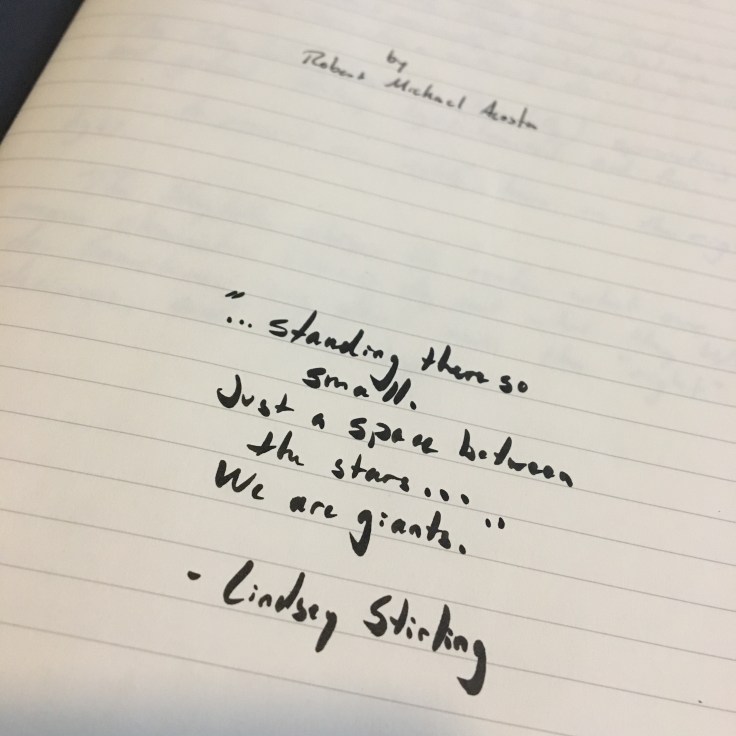 by
Robert Michael Acosta
"... standing there so
small.
Just a space between
the stars...
We are giants."
- Lindsey Stirling